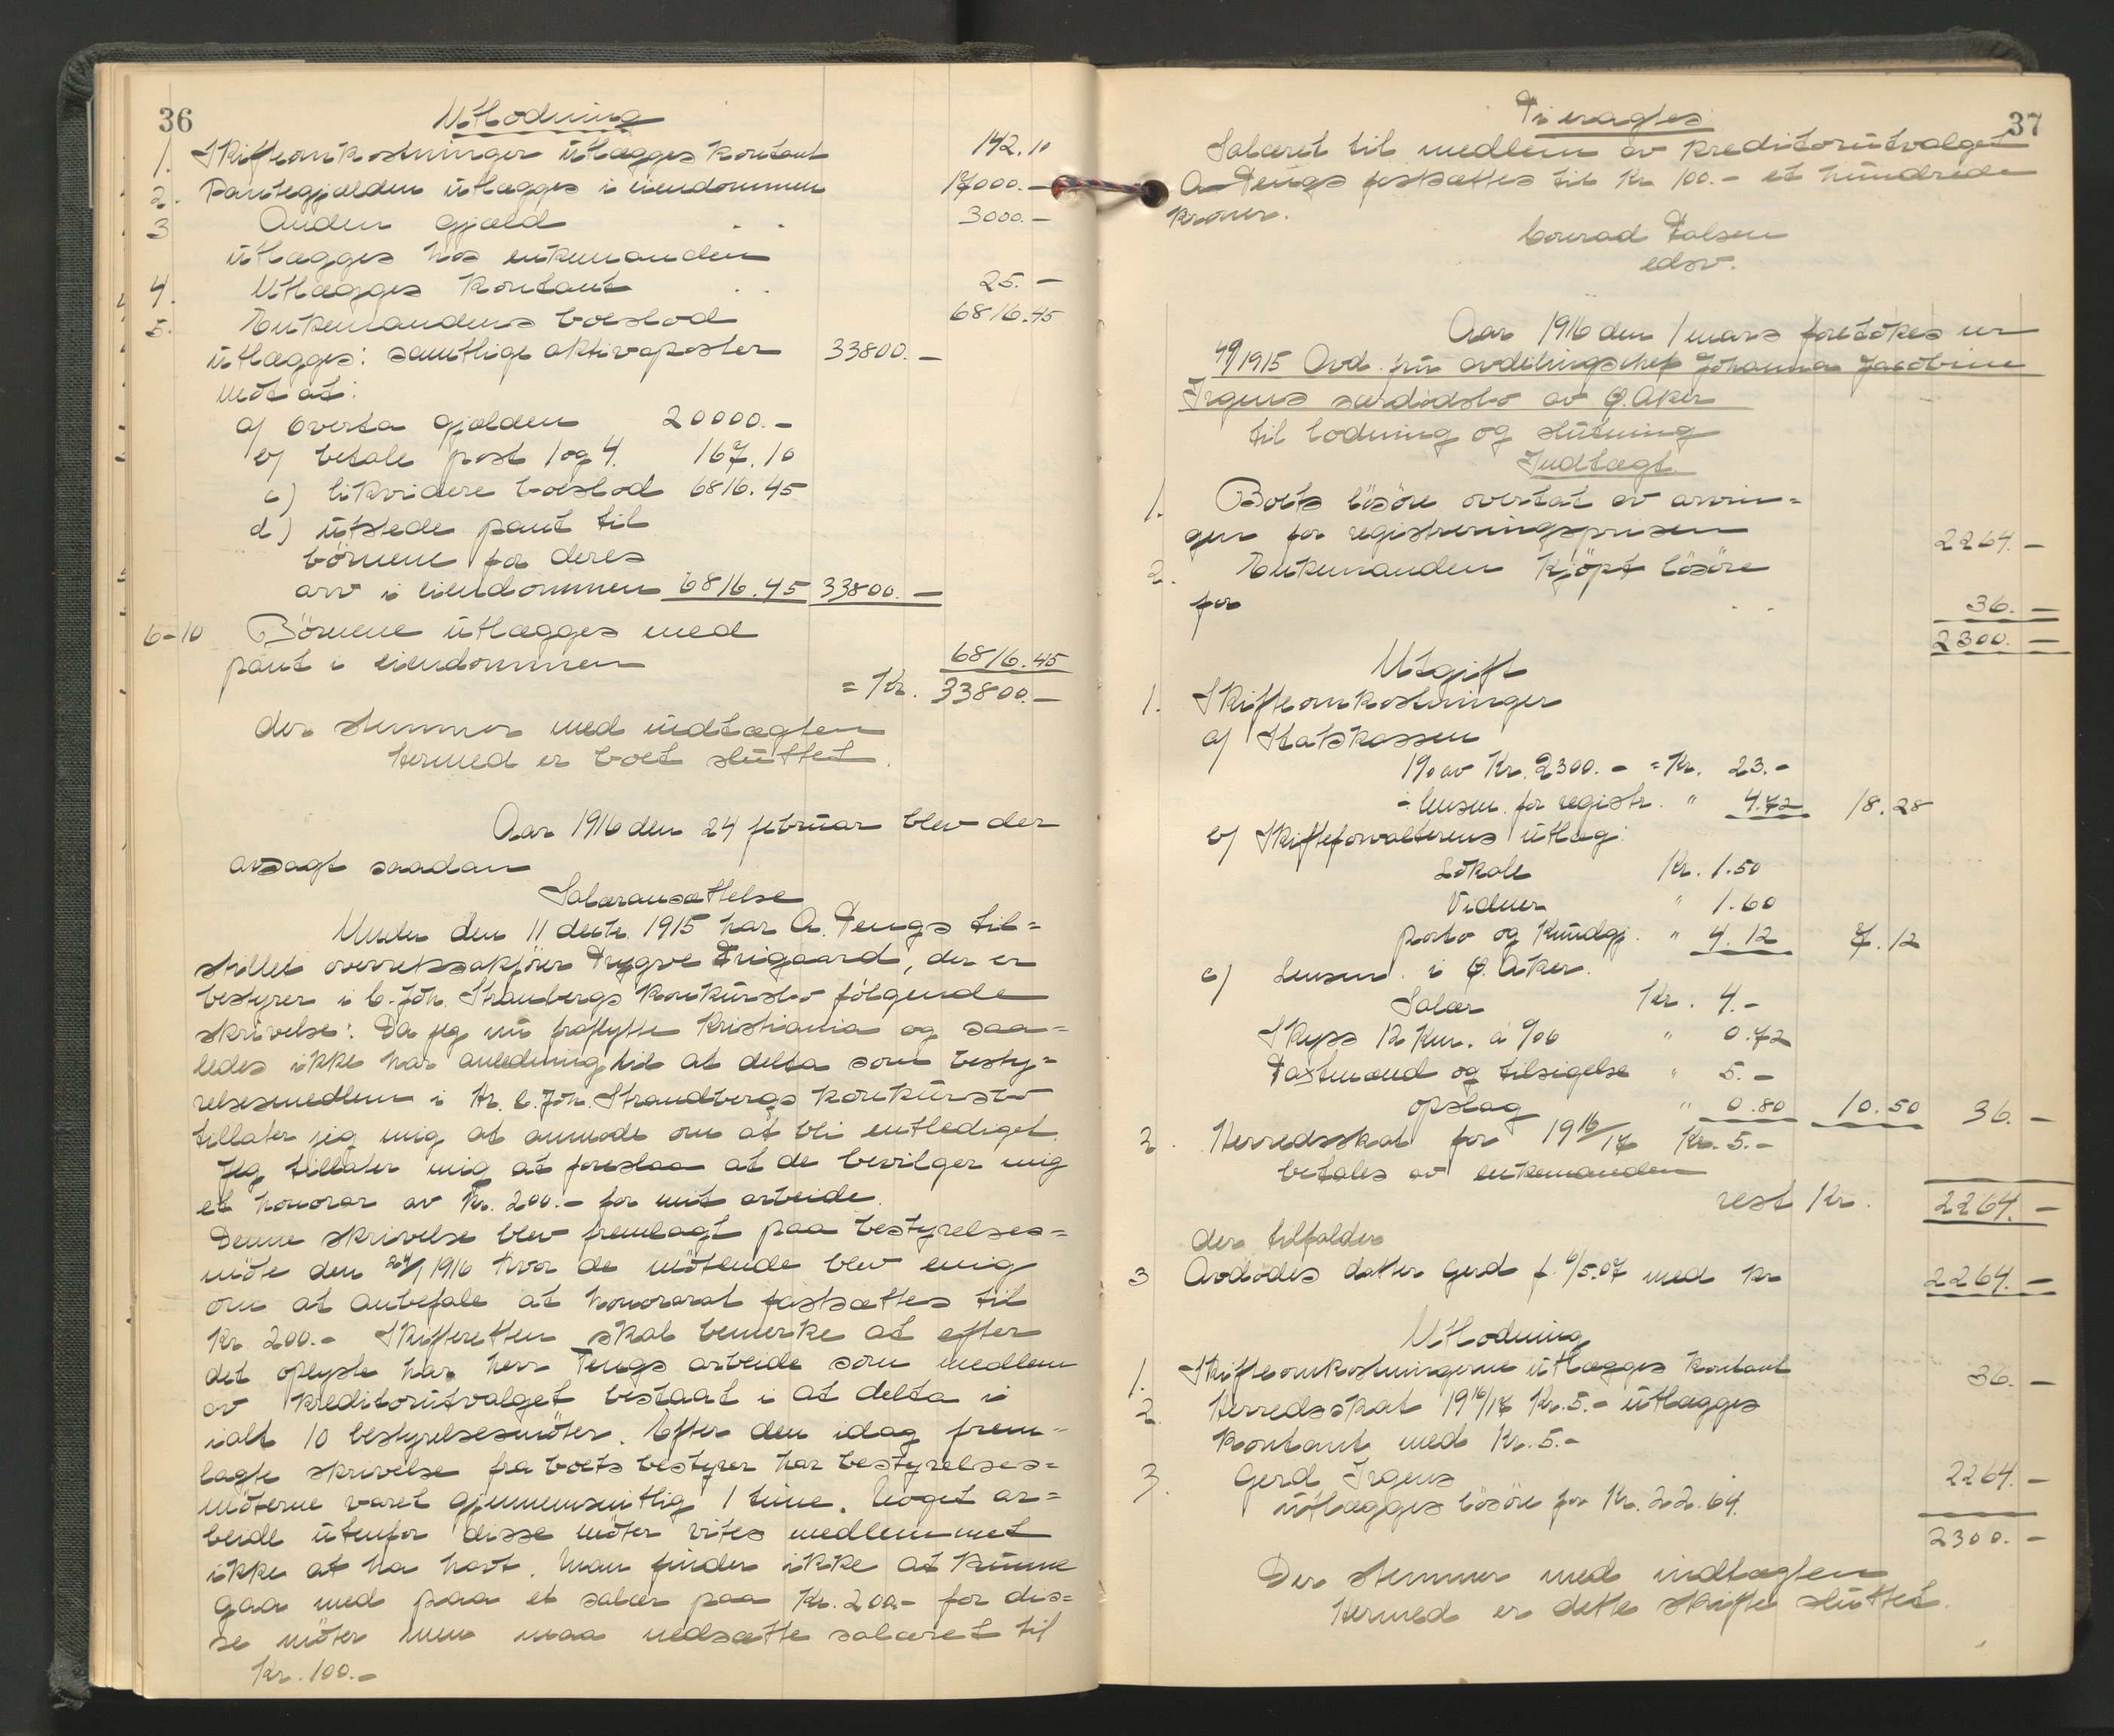 36
Utlodning
1. Skifteomkostninger utlægges kontant 142.10
2. Pantegjælden utlægges i eiendommen 17000.-
3 Anden gjæld . . 3000.-
utlægges hos enkemanden
4. Utlægges kontant . . 25.-
5. Enkemandens boeslod 6816.45
utlægges: samtlige aktivaposter 33800.-
mot at:
a) overta gjælden 20000.-
b) betale post 1 og 4. 167.10
c) likvidere boeslod 6816.45
d) utstede pant til
börnene for deres
arv i eiendommen 6816.45 33800.-
6-10 Börnene utlægges med
pant i eiendommen 6816.45
= Kr. 33800.-
der stemmer med indtægten
Hermed er boet sluttet.
Aar 1916 den 24 februar blev der
avsagt saadan
Salæransættelse
Under den 11 decbr. 1915 har A. Tengs til=
stillet overretssakförer Trygve Trigaard, der er
bestyrer i C. Joh. Strandbergs konkursbo fölgende
skrivelse: Da jeg nu fraflytter Kristiania og saa=
ledes ikke har anledning til at delta som besty=
relsesmedlem i Hr. C. Joh. Strandbergs konkursbo
tillater jeg mig at anmode om at bli entlediget.
Jeg tillater mig at foreslaa at de bevilger mig
et honorar av Kr. 200.- for mit arbeide.
Denne skrivelse blev fremlagt paa bestyrelses=
möte den 24/1 1916 hvor de mötende blev enig
om at anbefale at honoraret fastsættes til
Kr. 200.- Skifteretten skal bemerke at efter
det oplyste har herr Tengs arbeide som medlem
av kreditorutvalget bestaat i at delta i
ialt 10 bestyrelsesmöter. Efter den idag frem-
lagte skrivelse fra boets bestyrer har bestyrelses=
möterne varet gjennemsnitlig 1 time. Noget ar=
beide utenfor disse möter vites medlemmet
ikke at ha havt. Man finder ikke at kunne
gaa med paa et salær paa Kr. 200.- for dis=
se möter men maa nedsætte salæret til
Kr. 100.-
37
Ti eragtes:
Salæret til medlem av kreditorutvalget
A Tengs fastsættes til Kr 100.- et hundrede
kroner.
Conrad Falsen
edsv.
Aar 1916 den 1 mars foretokes nr
49/1915 Avd. fru avdelingschef Johanna Jacobine
Irgens særdödsbo av Ø. Aker
til lodning og slutning
Indtægt
1. Boets lösöre overtat av arvin=
gen for registreringsprisen 2264.-
2. Enkemanden kjöpt lösöre
for . . 36.-
2300.-
Utgift
1. Skifteomkostninger
a) Statskassen
1% av Kr. 2300.- = Kr. 23.-
÷ lensm. for registr. " 4.72 18.28
b) Skifteforvalterens utlæg:
Lokale Kr. 1.50
Vidner " 1.60
porto og kundgj. " 4.12 7.12
c) Lensm. i Ø. Aker.
Salær Kr. 4.-
Skyss 12 km. á %06 " 0.72
Taxtmænd og tilsigelse " 5.-
opslag " 0.80 10.50 36.-
2. Herredsskat for 1916/17 Kr. 5.-
betales av enkemanden
rest Kr. 2264.-
der tilfalder
3 Avdödes datter Gerd f. 6/5.07 med Kr 2264.-
Utlodning
1. Skifteomkostningerne utlægges kontant 36.-
2. Herredsskat 1916/17 Kr. 5.- utlægges
kontant med Kr. 5.-
3. Gerd Irgens 2264.-
utlægges lösöre for Kr. 22.64.
2300.-
Der stemmer med indtægten
Hermed er dette skifte sluttet.